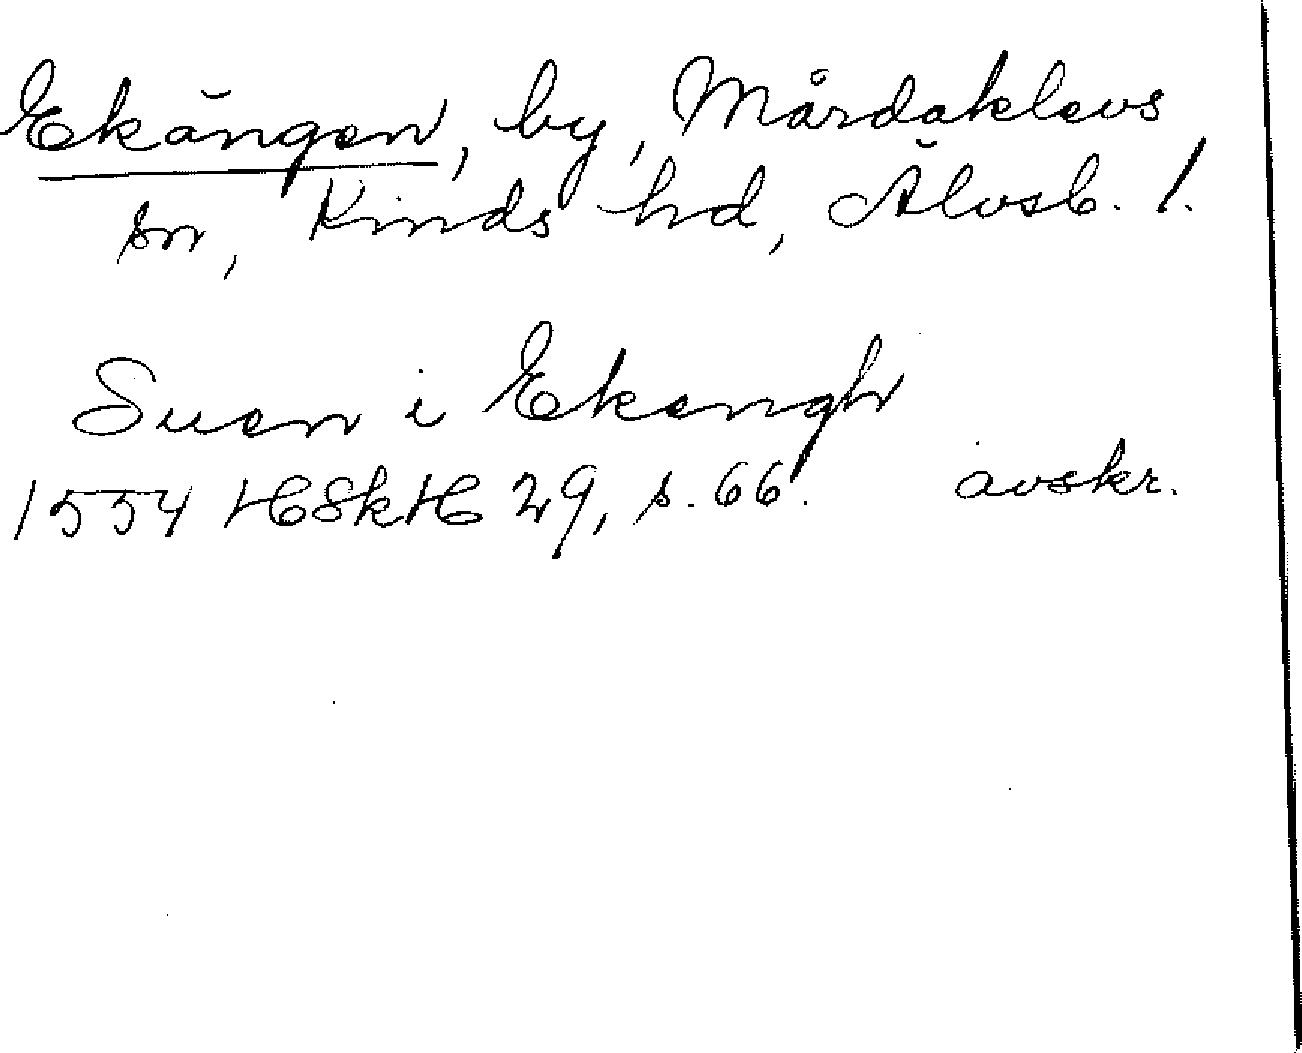 Ekängen, by, Mårdaklevs
sn, Kinds hd, Älvsb. l.
Suen i Ekengh
1554 HSkH 29, s. 66. avskr.